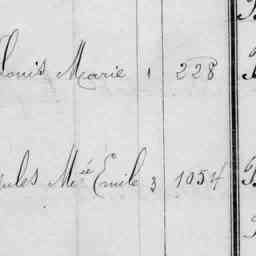 Louis Marie 1 228
Jules Mie Emile 3 1054